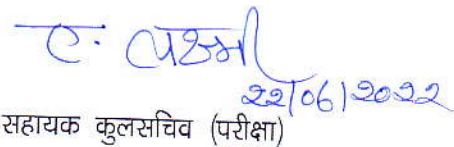 ए. लक्ष्मी
22/06/2022
सहायक कुलसचिव (परीक्षा)